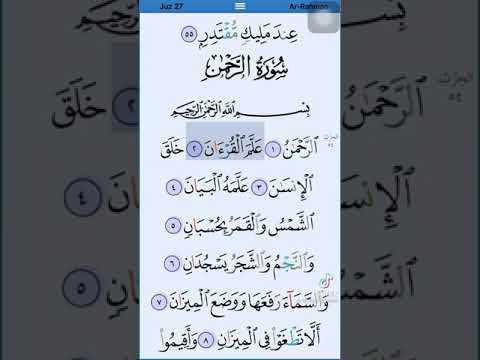 Juz 27
Ar-Rahman
عِندَ مَلِيكٍ مُّقْتَدِرٍ ٥٥
سُورَةُ الرَّحْمَٰن
بِسْمِ اللَّهِ الرَّحْمَٰنِ الرَّحِيمِ
الرَّحْمَٰنُ ١ عَلَّمَ الْقُرْءَانَ ٢ خَلَقَ
الْإِنسَٰنَ ٣ عَلَّمَهُ الْبَيَانَ ٤
الشَّمْسُ وَالْقَمَرُ بِحُسْبَانٍ ٥
وَالنَّجْمُ وَالشَّجَرُ يَسْجُدَانِ ٦
وَالسَّمَآءَ رَفَعَهَا وَوَضَعَ الْمِيزَانَ ٧
أَلَّا تَطْغَوْا فِي الْمِيزَانِ ٨ وَأَقِيمُوا